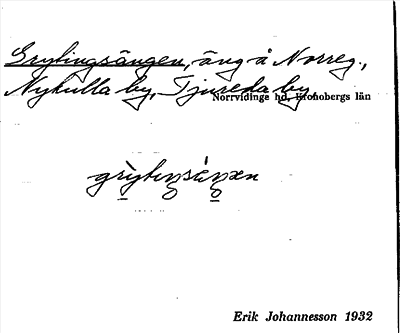 Grytingsängen, äng å Norreg.,
Nykulla by, Tjureda by.
Norrvidinge hd, Kronobergs län
Erik Johannesson 1932